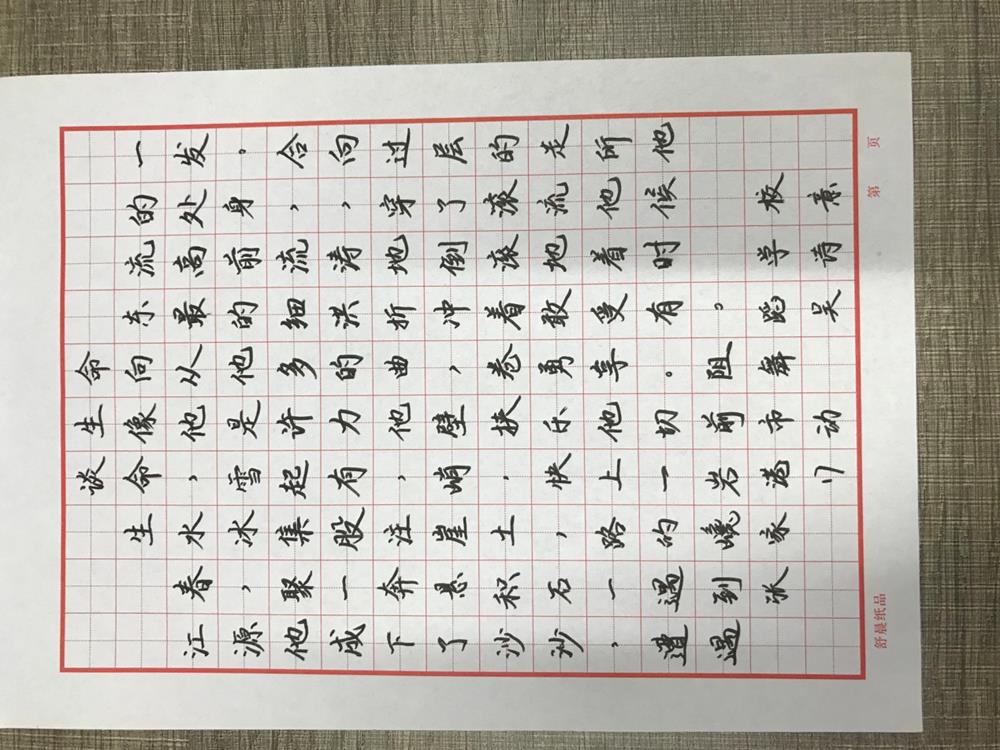 谈生命
生命像向东流的一
江春水，他从最高处发
源，冰雪是他的前身。
他聚集起许多细流，合
成一股有力的洪涛，向
下奔注，他曲折地穿过
了悬崖峭壁，冲倒了层
沙积土，挟卷着滚滚的
沙石，快乐勇敢地流走
，一路上他享受着他所
遭遇的一切。有时候他
遇到巉岩前阻。
张家港市舞蹈学校
17动 吴诗意
舒晨纸品 第 页